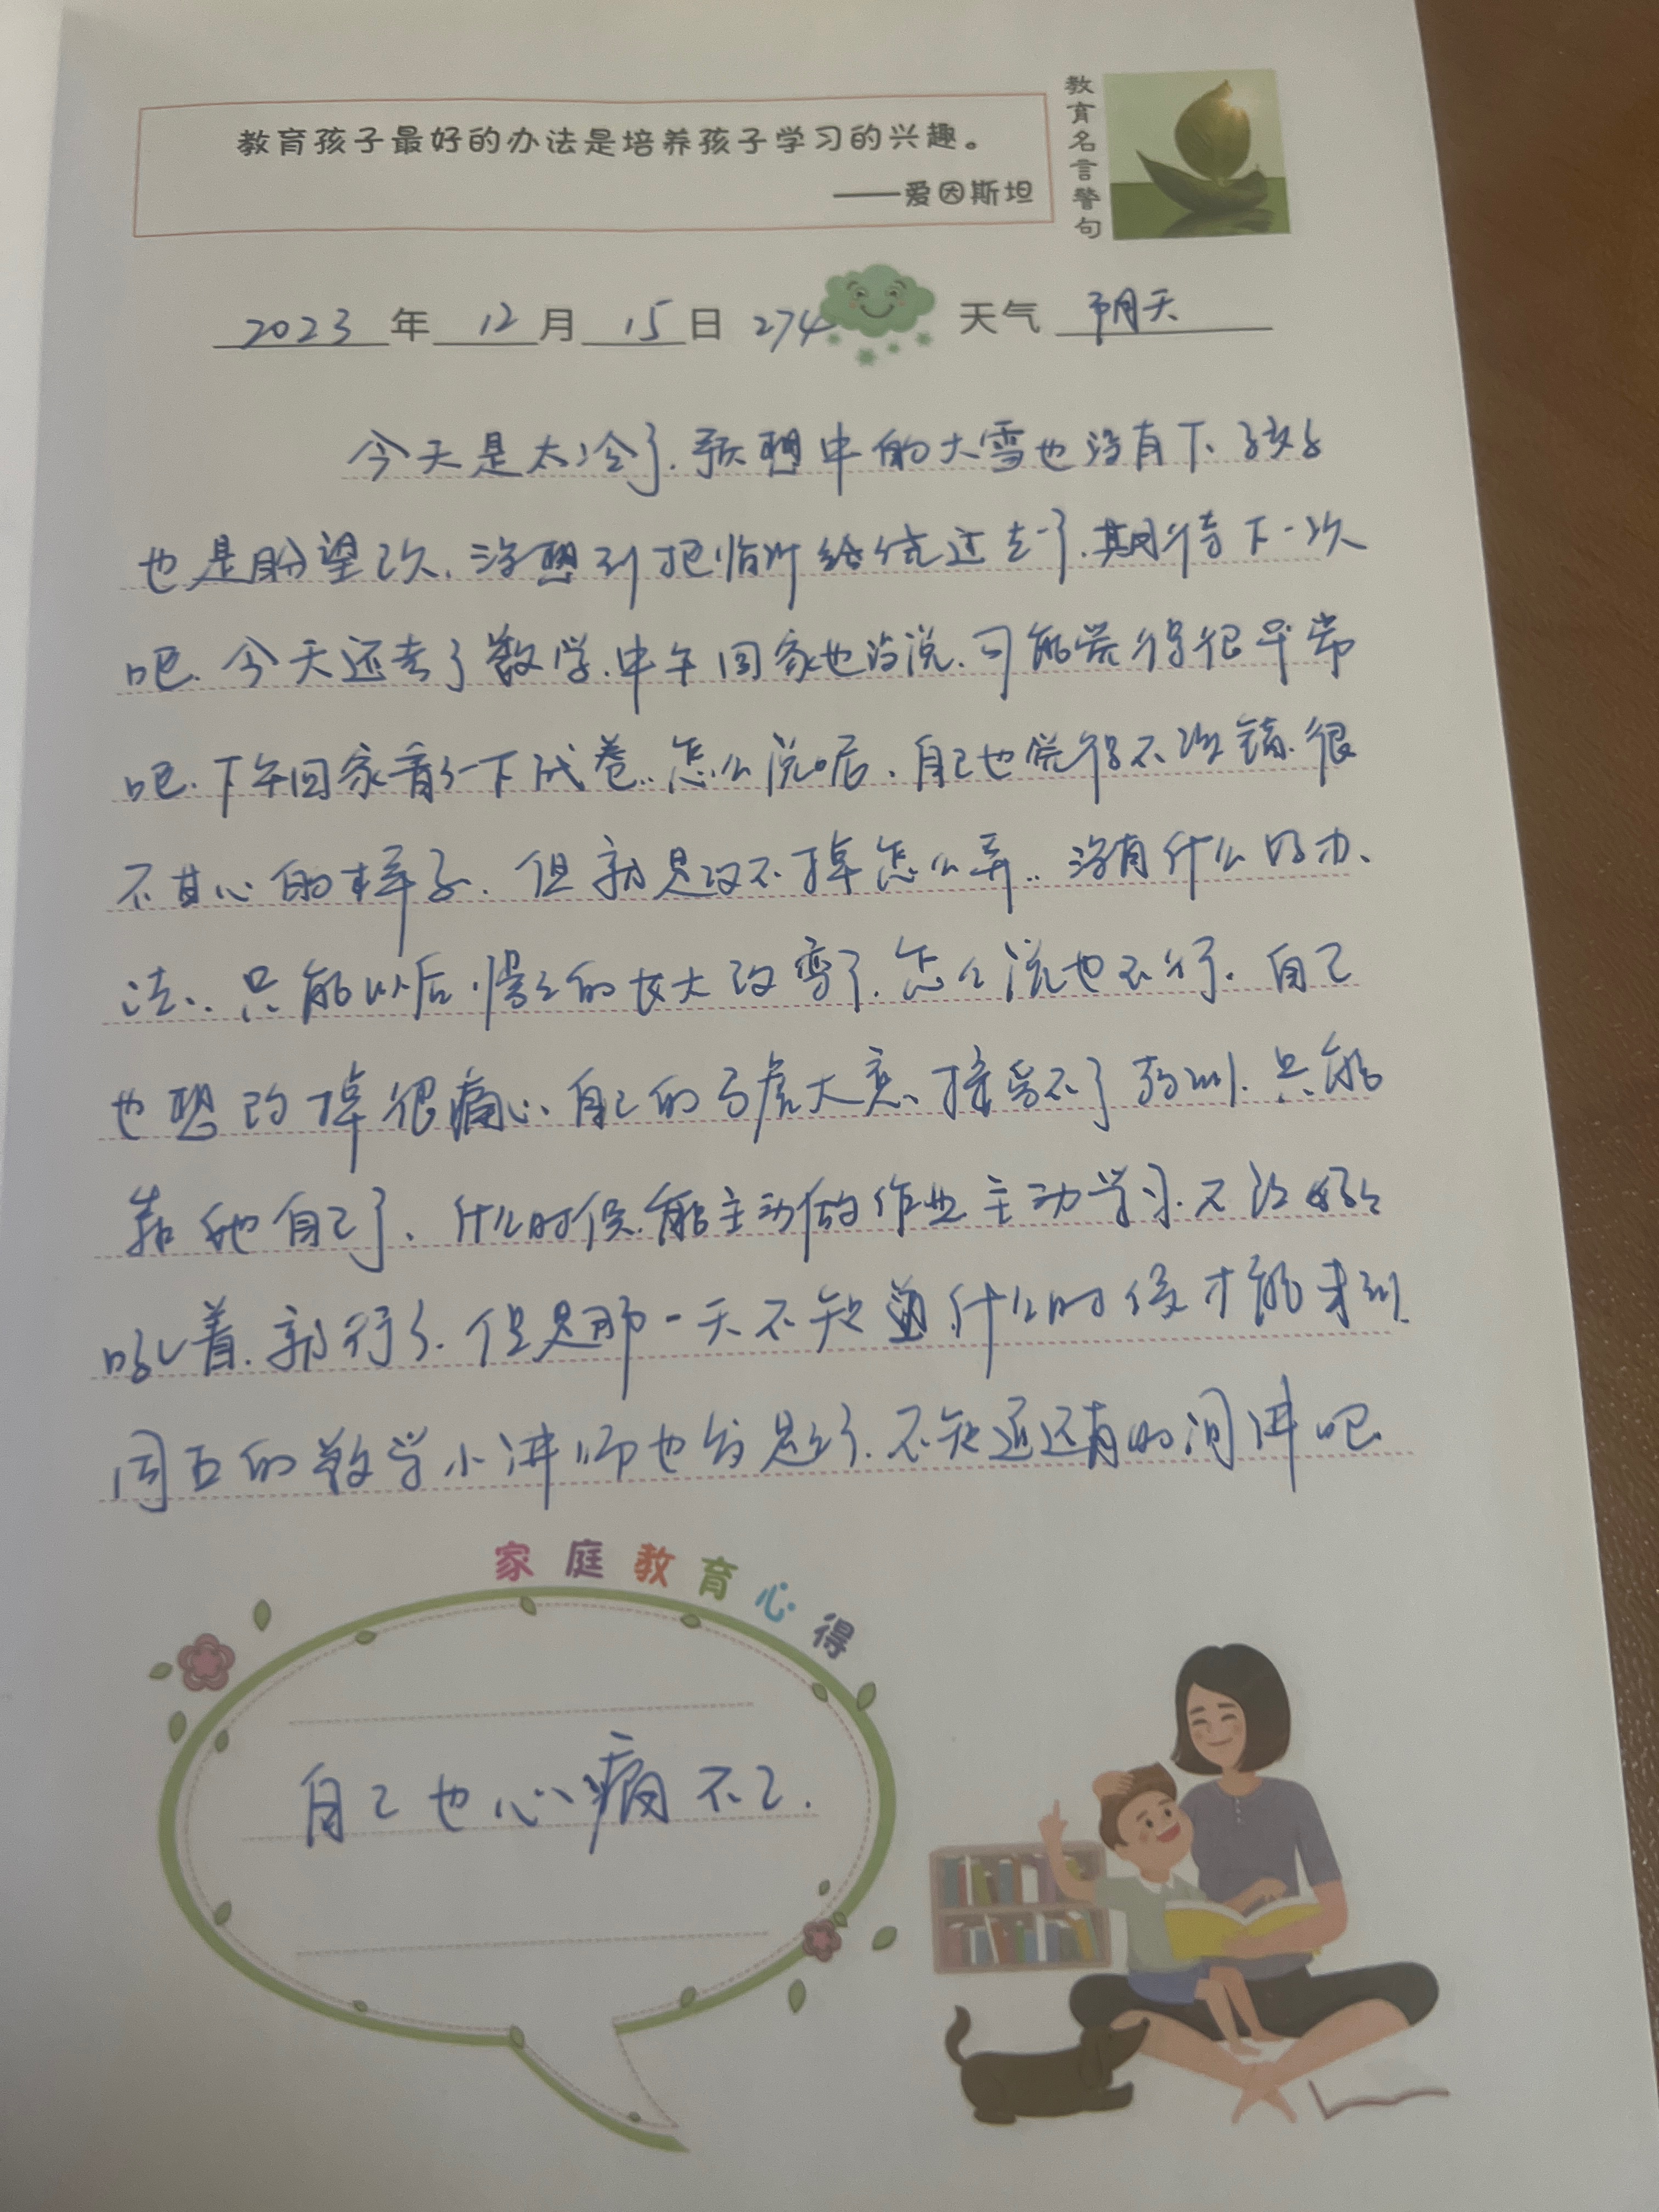 教育孩子最好的办法是培养孩子学习的兴趣。
——爱因斯坦
教育名言警句
2023年12月15日 274 天气 阴天
今天是太冷了.预想中的大雪也没有下、孩子
也是盼望已久.没想到把临沂给绕过去了.期待下一次
吧.今天还考了数学.中午回家也没说.可能觉得很平常
吧.下午回家看了一下试卷..怎么说呢.自己也觉得不没错.很
不甘心的样子.但就是改不掉怎么弄..没有什么好办、
法..只能以后慢慢的长大改变了.怎么说也不行.自己
也想改掉很痛心、自己的马虎大意、接受不了 .只能
靠他自己了.什么时候.能主动做作业主动学习.不让
吆着.就行了.但是那一天不知道什么时候才能来到.
周五的数学小讲师也 了.不知道还有时间讲吧
家庭教育心得
自己也心痛不已.